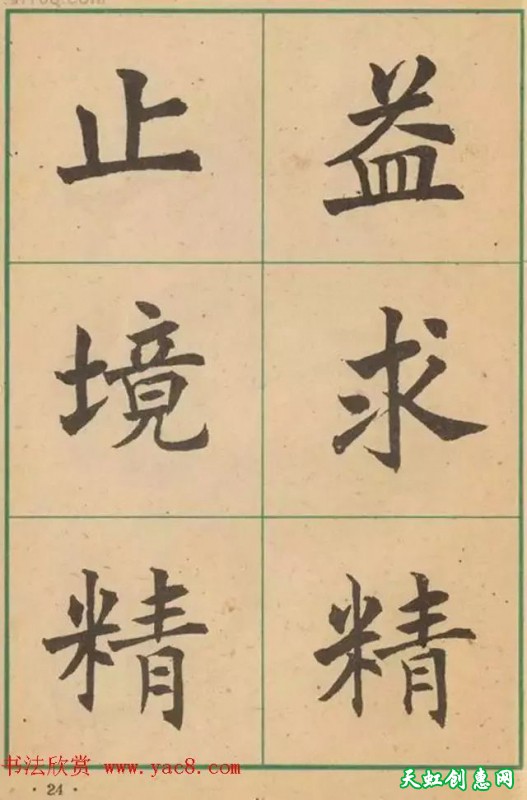 益求精
止境精
书法欣赏 www.yac8.com
· 24 ·
天虹创惠网